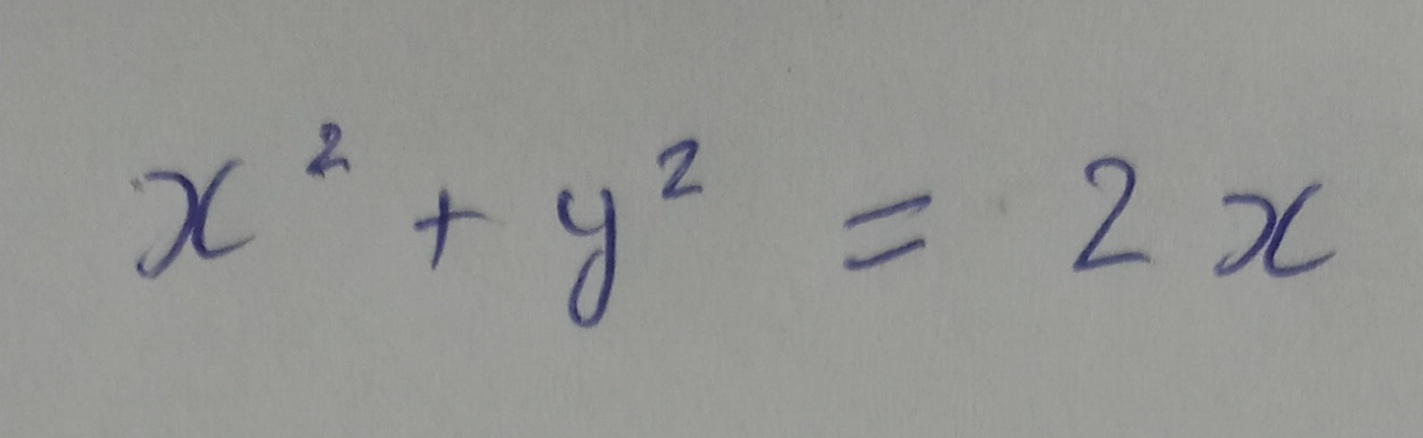 x² + y² = 2x